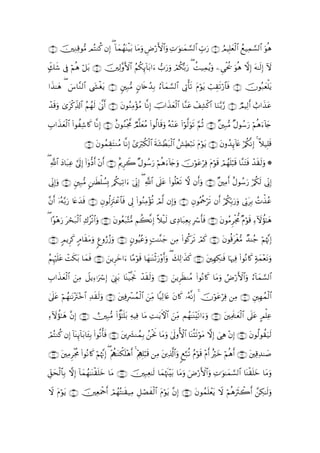 هُوَ ٱلسَّمِيعُ ٱلْعَلِيمُ ۝ رَبِّ ٱلسَّمَٰوَٰتِ وَٱلْأَرْضِ وَمَا بَيْنَهُمَآ ۖ إِن كُنتُم مُّوقِنِينَ ۝
لَآ إِلَٰهَ إِلَّا هُوَ يُحْىِۦ وَيُمِيتُ ۖ رَبُّكُمْ وَرَبُّ ءَابَآئِكُمُ ٱلْأَوَّلِينَ ۝ بَلْ هُمْ فِى شَكٍّ
يَلْعَبُونَ ۝ فَٱرْتَقِبْ يَوْمَ تَأْتِى ٱلسَّمَآءُ بِدُخَانٍ مُّبِينٍ ۝ يَغْشَى ٱلنَّاسَ ۖ هَٰذَا
عَذَابٌ أَلِيمٌ ۝ رَّبَّنَا ٱكْشِفْ عَنَّا ٱلْعَذَابَ إِنَّا مُؤْمِنُونَ ۝ أَنَّىٰ لَهُمُ ٱلذِّكْرَىٰ وَقَدْ
جَآءَهُمْ رَسُولٌ مُّبِينٌ ۝ ثُمَّ تَوَلَّوْا۟ عَنْهُ وَقَالُوا۟ مُعَلَّمٌ مَّجْنُونٌ ۝ إِنَّا كَاشِفُوا۟ ٱلْعَذَابِ
قَلِيلًا ۚ إِنَّكُمْ عَآئِدُونَ ۝ يَوْمَ نَبْطِشُ ٱلْبَطْشَةَ ٱلْكُبْرَىٰٓ إِنَّا مُنتَقِمُونَ ۝
۞ وَلَقَدْ فَتَنَّا قَبْلَهُمْ قَوْمَ فِرْعَوْنَ وَجَآءَهُمْ رَسُولٌ كَرِيمٌ ۝ أَنْ أَدُّوٓا۟ إِلَىَّ عِبَادَ ٱللَّهِ ۖ إِنِّى
لَكُمْ رَسُولٌ أَمِينٌ ۝ وَأَن لَّا تَعْلُوا۟ عَلَى ٱللَّهِ ۖ إِنِّىٓ ءَاتِيكُم بِسُلْطَٰنٍ مُّبِينٍ ۝ وَإِنِّى
عُذْتُ بِرَبِّى وَرَبِّكُمْ أَن تَرْجُمُونِ ۝ وَإِن لَّمْ تُؤْمِنُوا۟ لِى فَٱعْتَزِلُونِ ۝ فَدَعَا رَبَّهُۥٓ أَنَّ
هَٰٓؤُلَآءِ قَوْمٌ مُّجْرِمُونَ ۝ فَأَسْرِ بِعِبَادِى لَيْلًا إِنَّكُم مُّتَّبَعُونَ ۝ وَٱتْرُكِ ٱلْبَحْرَ رَهْوًا ۖ
إِنَّهُمْ جُندٌ مُّغْرَقُونَ ۝ كَمْ تَرَكُوا۟ مِن جَنَّٰتٍ وَعُيُونٍ ۝ وَزُرُوعٍ وَمَقَامٍ كَرِيمٍ ۝
وَنَعْمَةٍ كَانُوا۟ فِيهَا فَٰكِهِينَ ۝ كَذَٰلِكَ ۖ وَأَوْرَثْنَٰهَا قَوْمًا ءَاخَرِينَ ۝ فَمَا بَكَتْ عَلَيْهِمُ
ٱلسَّمَآءُ وَٱلْأَرْضُ وَمَا كَانُوا۟ مُنظَرِينَ ۝ وَلَقَدْ نَجَّيْنَا بَنِىٓ إِسْرَٰٓءِيلَ مِنَ ٱلْعَذَابِ
ٱلْمُهِينِ ۝ مِن فِرْعَوْنَ ۚ إِنَّهُۥ كَانَ عَالِيًا مِّنَ ٱلْمُسْرِفِينَ ۝ وَلَقَدِ ٱخْتَرْنَٰهُمْ عَلَىٰ
عِلْمٍ عَلَى ٱلْعَٰلَمِينَ ۝ وَءَاتَيْنَٰهُم مِّنَ ٱلْءَايَٰتِ مَا فِيهِ بَلَٰٓؤٌا۟ مُّبِينٌ ۝ إِنَّ هَٰٓؤُلَآءِ
لَيَقُولُونَ ۝ إِنْ هِىَ إِلَّا مَوْتَتُنَا ٱلْأُولَىٰ وَمَا نَحْنُ بِمُنشَرِينَ ۝ فَأْتُوا۟ بِـَٔابَآئِنَآ إِن كُنتُمْ
صَٰدِقِينَ ۝ أَهُمْ خَيْرٌ أَمْ قَوْمُ تُبَّعٍ وَٱلَّذِينَ مِن قَبْلِهِمْ ۚ أَهْلَكْنَٰهُمْ ۖ إِنَّهُمْ كَانُوا۟ مُجْرِمِينَ ۝
وَمَا خَلَقْنَا ٱلسَّمَٰوَٰتِ وَٱلْأَرْضَ وَمَا بَيْنَهُمَا لَٰعِبِينَ ۝ مَا خَلَقْنَٰهُمَآ إِلَّا بِٱلْحَقِّ
وَلَٰكِنَّ أَكْثَرَهُمْ لَا يَعْلَمُونَ ۝ إِنَّ يَوْمَ ٱلْفَصْلِ مِيقَٰتُهُمْ أَجْمَعِينَ ۝ يَوْمَ لَا